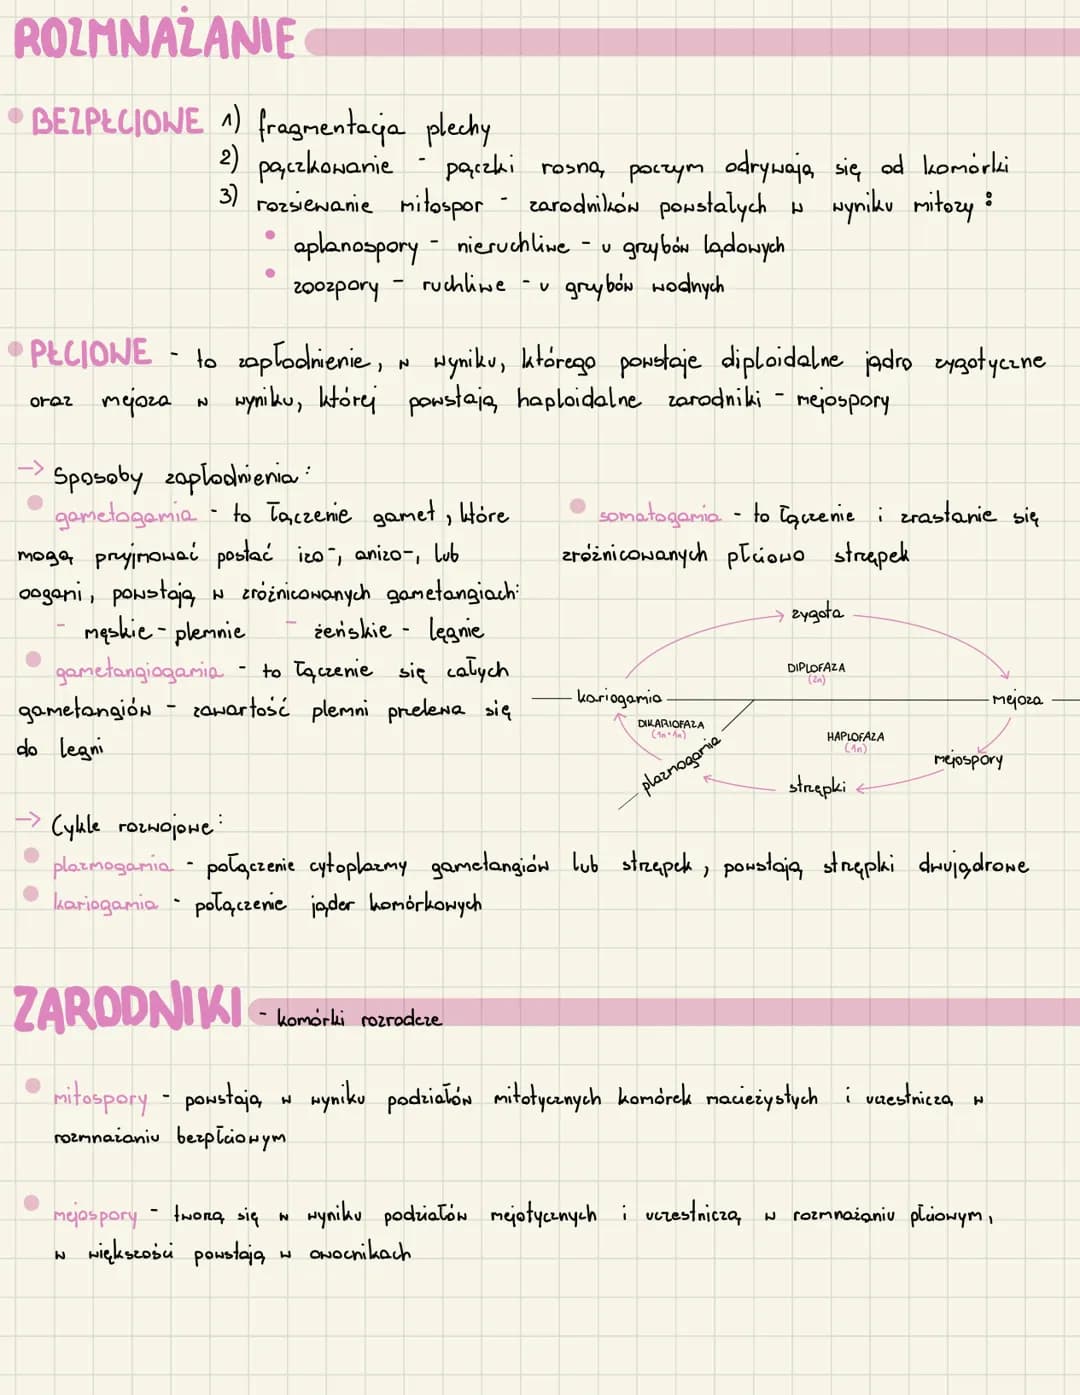 ROZMNAŻANIE
• BEZPŁCIOWE 1) fragmentacja plechy
2) pączkowanie - pączki rosną, poczym odrywają się od komórki
3) rozsiewanie mitospor - zarodników powstałych w wyniku mitozy :
• aplanospory - nieruchliwe - u grzybów lądowych
• zoozpory - ruchliwe - u grzybów wodnych
• PŁCIOWE - to zapłodnienie, w wyniku, którego powstaje diploidalne jądro zygotyczne
oraz mejoza w wyniku, której powstają haploidalne zarodniki - mejospory
→ Sposoby zapłodnienia :
• gametogamia - to łączenie gamet, które
mogą przyjmować postać izo-, anizo-, lub
oogami, powstają w zróżnicowanych gametangiach:
- męskie - plemnie - żeńskie - lęgnie
• gametangiogamia - to łączenie się całych
gametangiów - zawartość plemni przelewa się
do legni
• somatogamia - to łączenie i zrastanie się
zróżnicowanych płciowo strzępek
zygota
DIPLOFAZA
(2n)
kariogamia
mejoza
DIKARIOFAZA
(1n+1n)
HAPLOFAZA
(1n)
plazmogamia
mejospory
strzępki
→ Cykle rozwojowe :
• plazmogamia - połączenie cytoplazmy gametangiów lub strzępek, powstają strzępki dwujądrowe
• kariogamia - połączenie jąder komórkowych
ZARODNIKI - komórki rozrodcze
• mitospory - powstają w wyniku podziałów mitotycznych komórek macieżystych i uczestniczą w
rozmnażaniu bezpłciowym
• mejospory - tworzą się w wyniku podziałów mejotycznych i uczestniczą w rozmnażaniu płciowym,
w większości powstają w owocnikach